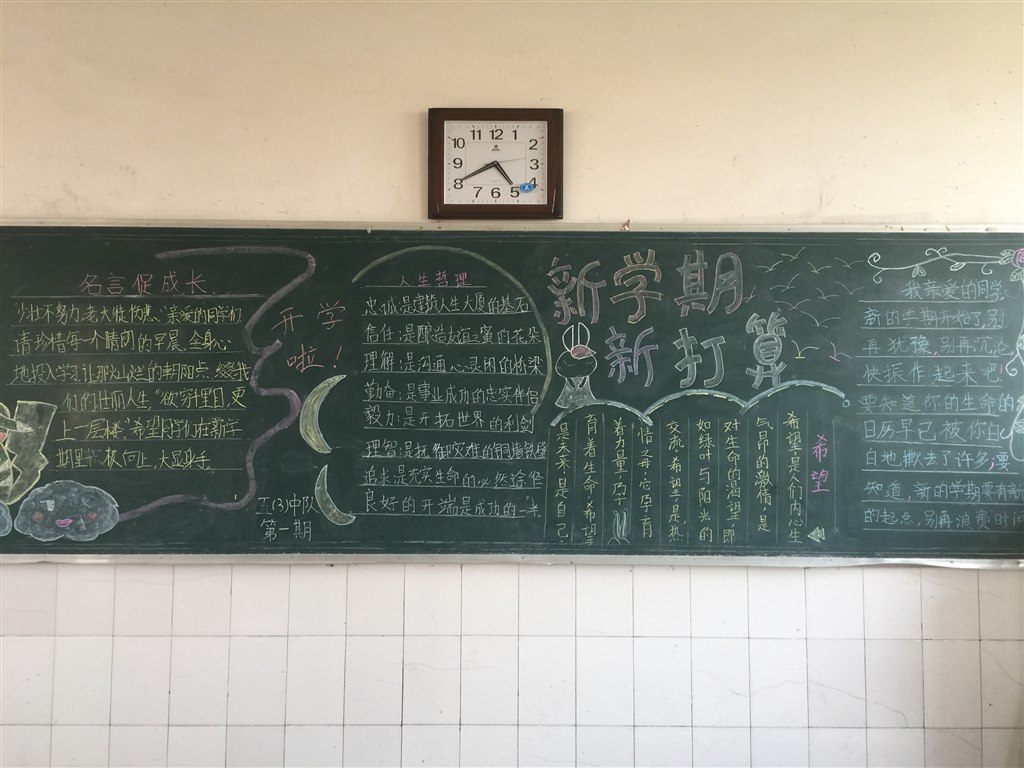 11 12 1
10 2
9 3
8 4
7 6 5
名言促成长
少壮不努力,老大徒伤悲。亲爱的同学们
请珍惜每一个晴朗的早晨,全身心
地投入学习,让那灿烂的朝阳点缀我
们的壮丽人生,"欲穷千里目,更
上一层楼"希望同学们在新学
期里积极向上,大显身手
开学
啦!
五(3)中队
第一期
人生哲理
忠诚:是建筑人生大厦的基石
信任:是酿造友谊蜜的花朵
理解:是沟通心灵间的桥梁
勤奋:是事业成功的忠实伴侣
毅力:是开拓世界的利剑
理智:是抚御灾难的铜墙铁壁
追求:是充实生命的必然途径
良好的开端是成功的一半
新学期
新打算
希望
希望是人们内心生
气昂的激情,是
对生命的渴望,即
如绿叶与阳光的
交流。希望,是热
情之母,它孕育
着力量,孕
育着生命。希望
是未来,是自己
我亲爱的同学
新的学期开始了,别
再犹豫,别再沉沦
快振作起来吧
要知道你的生命的
日历早已被你白
白地撒去了许多,要
知道,新的学期要有新
的起点,别再浪费时间